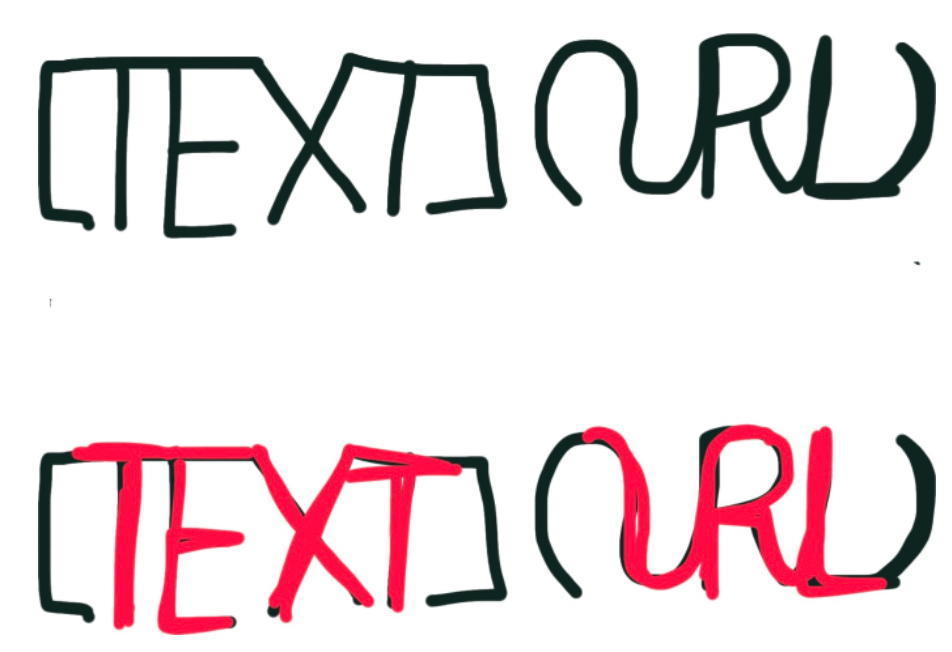 [TEXT](URL)
[TEXT](URL)